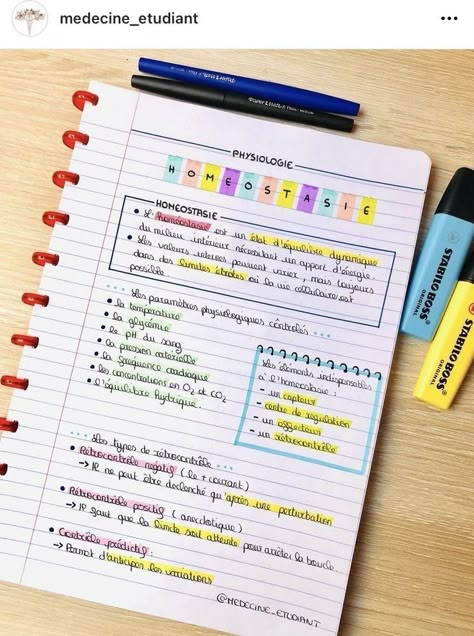 medecine_etudiant
PHYSIOLOGIE
HOMEOSTASIE
HOMEOSTASIE
• L'homéostasie est un état d'équilibre dynamique
du milieu intérieur nécessitant un apport d'énergie.
• Les valeurs internes peuvent varier, mais toujours
dans des limites étroites où la vie cellulaire est
possible.
Les paramètres physiologiques contrôlés
• la température
• la glycémie
• le pH du sang
• la pression artérielle
• la fréquence cardiaque
• les concentrations en O2 et CO2
• l'équilibre hydrique.
Les éléments indispensables
à l'homéostasie :
- un capteur
- centre de régulation
- un effecteur
- un rétrocontrôle
Les types de rétrocontrôle
• Rétrocontrôle négatif (le + courant)
→ Il ne peut être déclenché qu'après une perturbation
• Rétrocontrôle positif (anecdotique)
→ Il faut que la limite soit atteinte pour arrêter la boucle.
• Contrôle prédictif :
→ Permet d'anticiper les variations
@MEDECINE_ETUDIANT
STABILO BOSS
ORIGINAL
STABILO BOSS
ORIGINAL